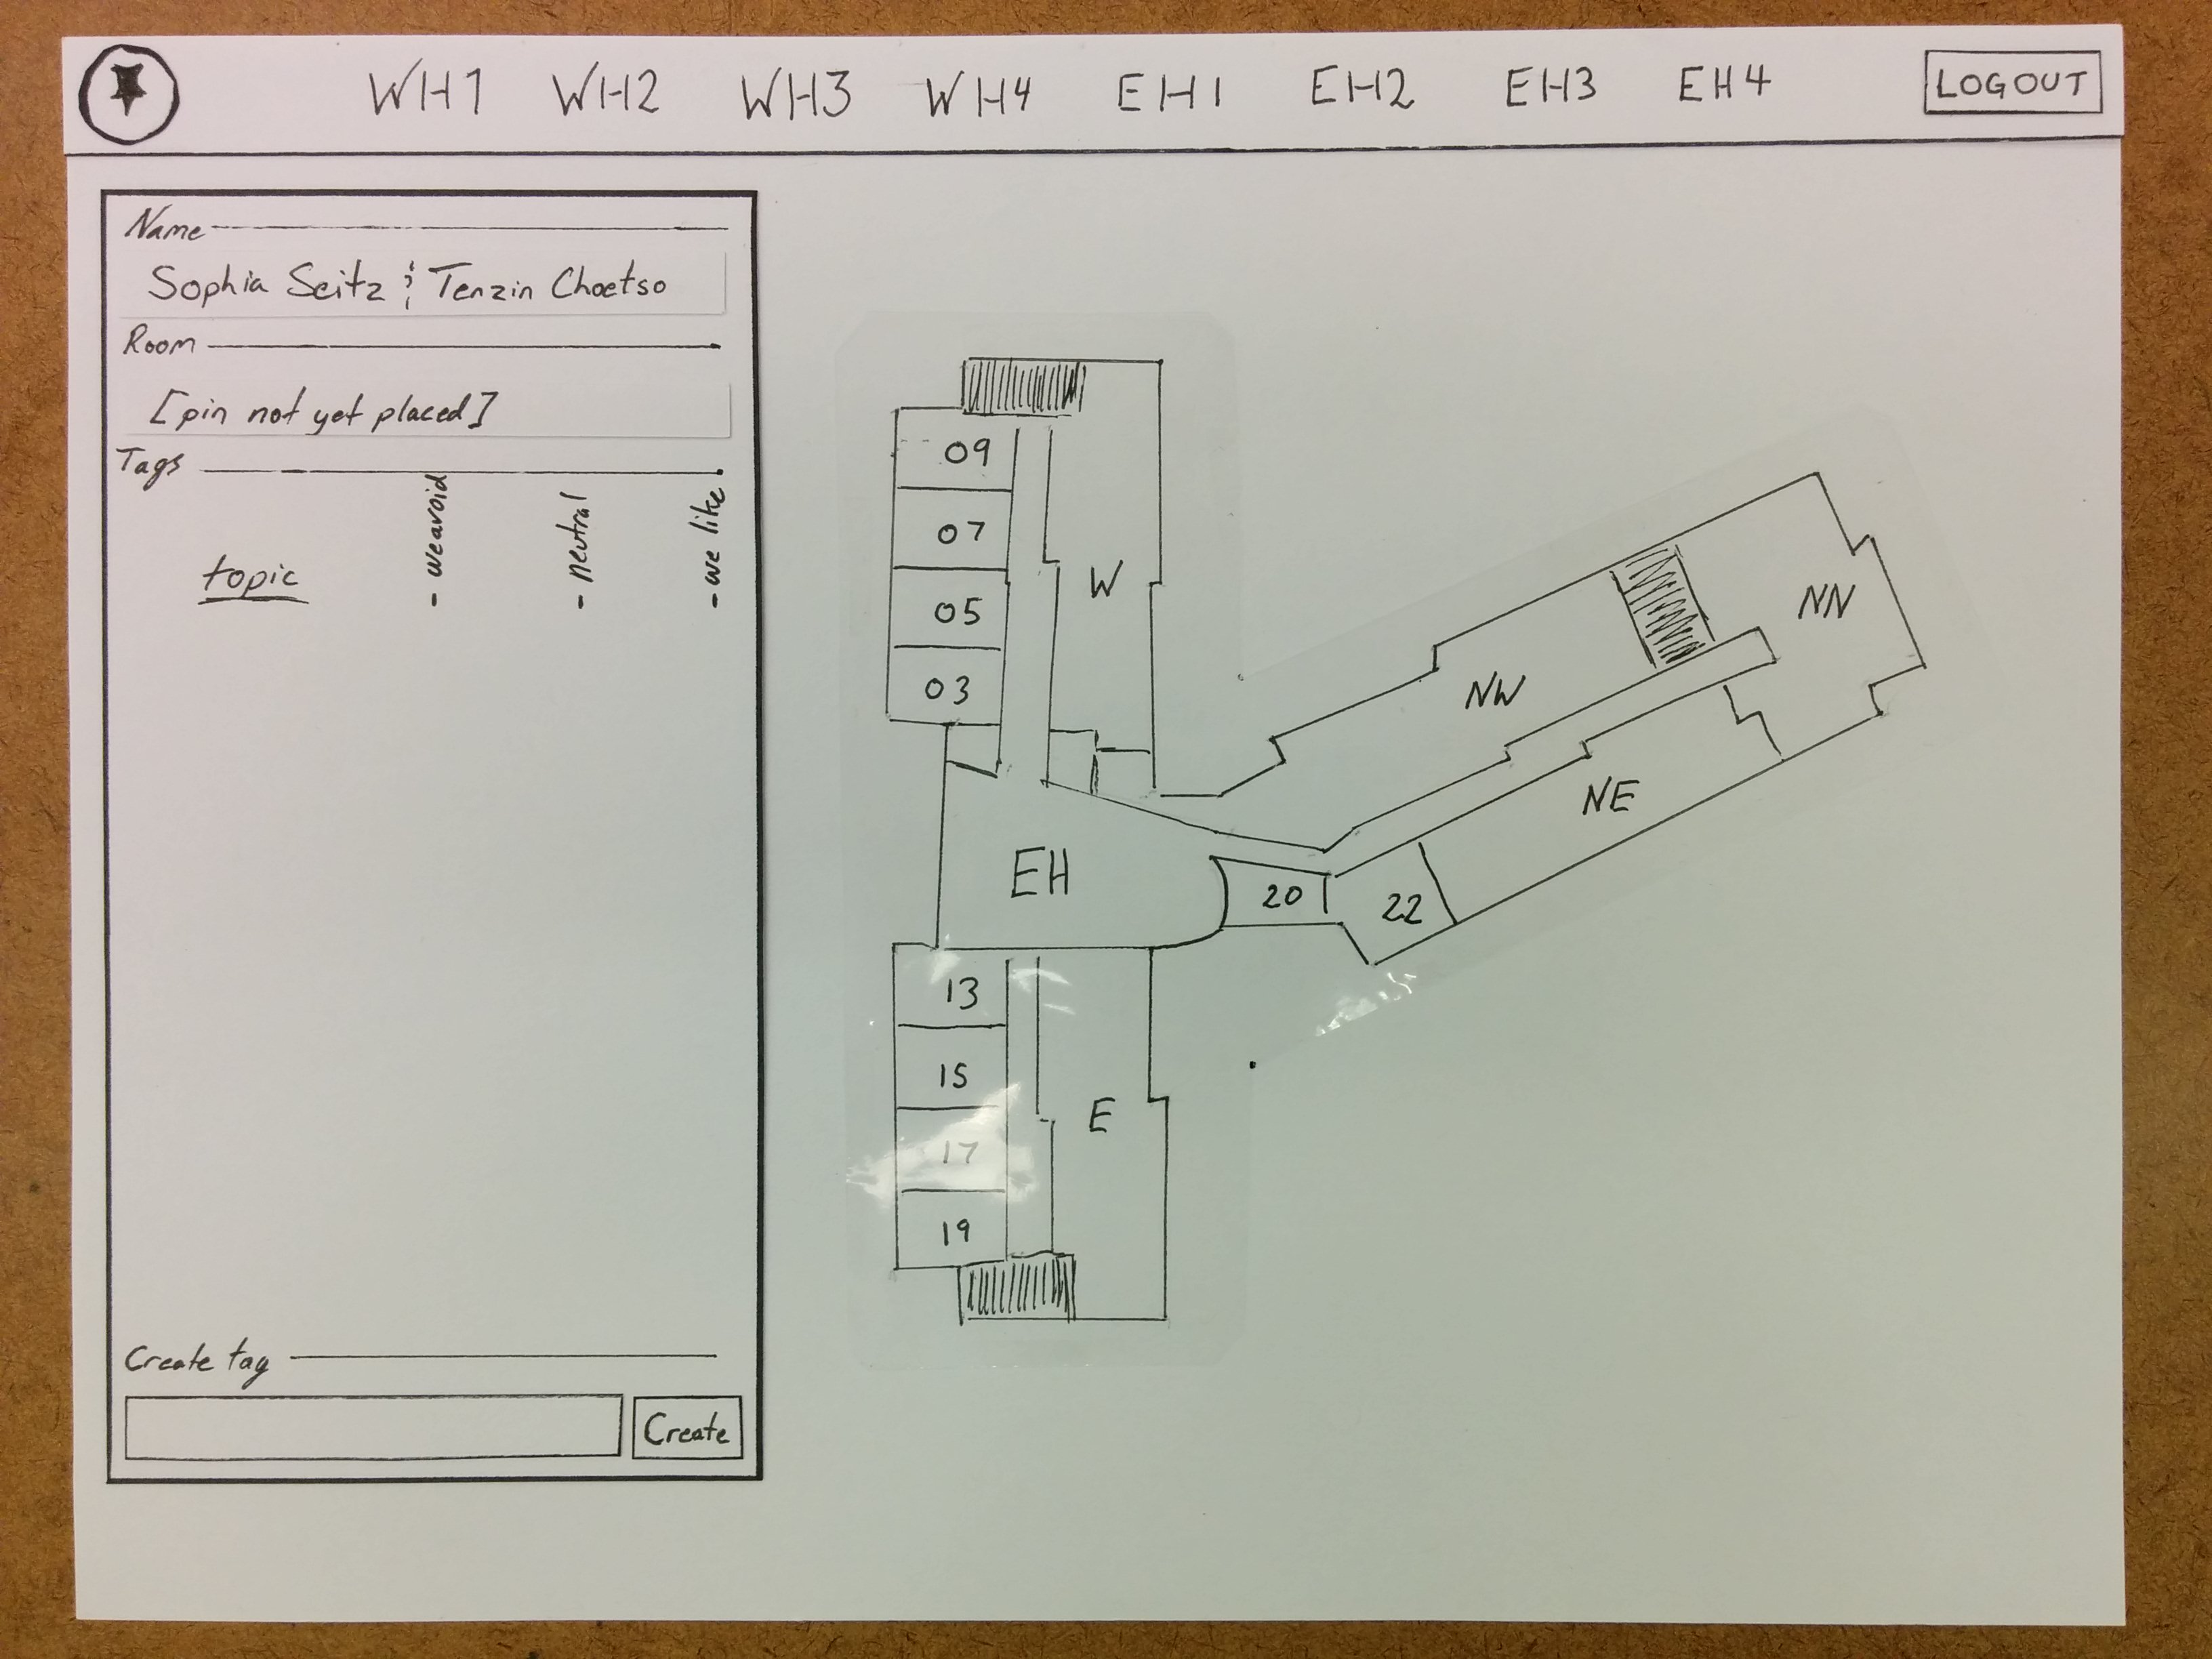 WH1 WH2 WH3 WH4 EH1 EH2 EH3 EH4 LOGOUT
Name
Sophia Seitz & Tenzin Choetso
Room
[pin not yet placed]
Tags
topic
- we avoid
- neutral
- we like
Create tag
Create
09
07
05
03
W
EH
20
22
NW
NN
NE
13
15
17
19
E